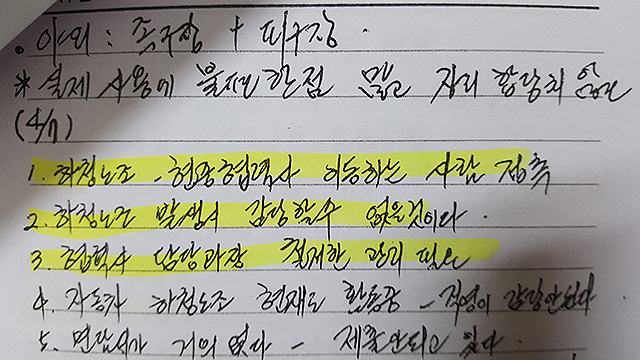 ◦ 야외 : 족구장 + 피구장.
* 실제 사용에 불편한점 많고 자리 합당치 않는
(4/7)
1. 하청노조 - 현장협력사 이동하는 사람 접촉
2. 하청노조 발생시 감당할수 없을것이다.
3. 협력사 담당과장 철저한 관리 필요
4. 자동차 하청노조 현재도 활동중 - 직영이 감당안된다
5. 면담시가 거의 없다 - 제출안되고 있다.